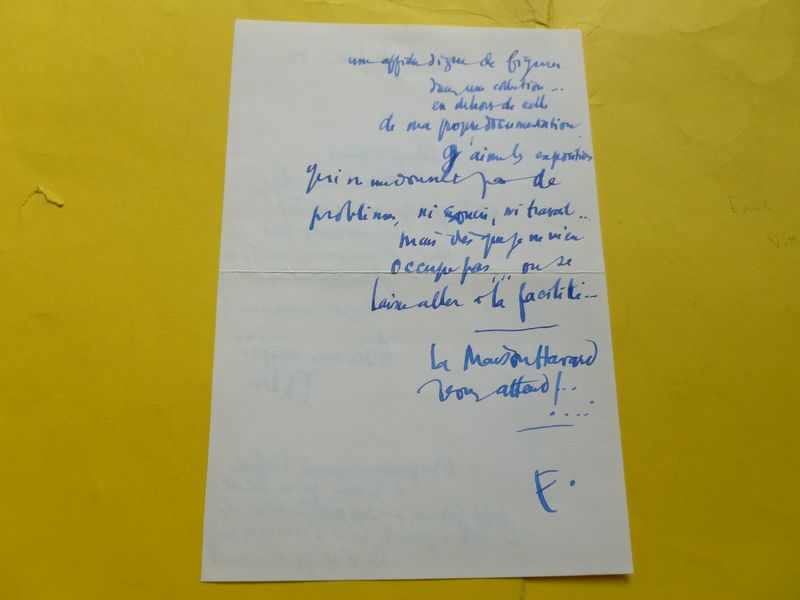 une affiche digne de figurer
dans une collection...
en dehors de celle
de ma propre documentation
J'aime les expositions
qui ne me donnent pas de
problèmes, ni soucis, ni travail...
mais dès que je ne m'en
occupe pas... on se
laisse aller à la facilité...
La Maison Havard
vous attend!...
F.